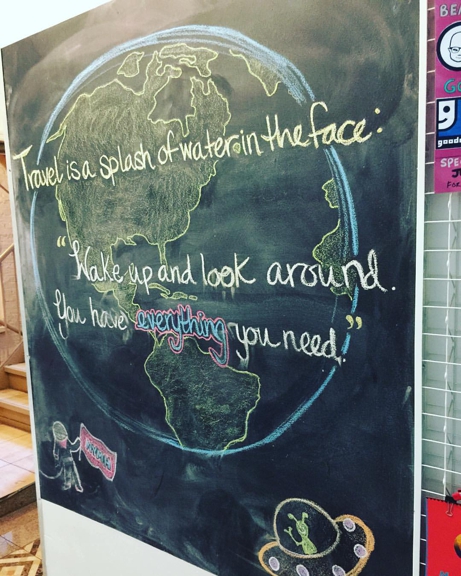 Travel is a splash of water in the face:
"Wake up and look around.
You have everything you need."
BE
GO
g
goodw
SPE
FOR